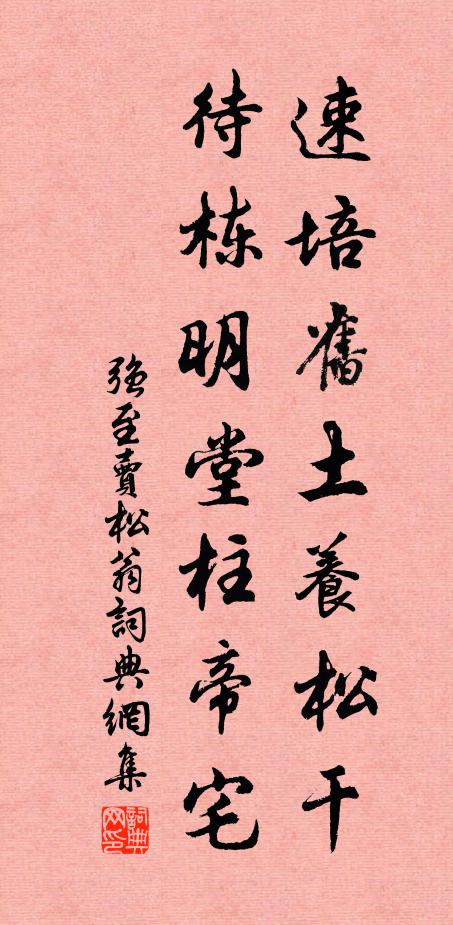 速培舊土養松干
待栋明堂柱帝宅
强至賣松翁詞典網集
詞典网印